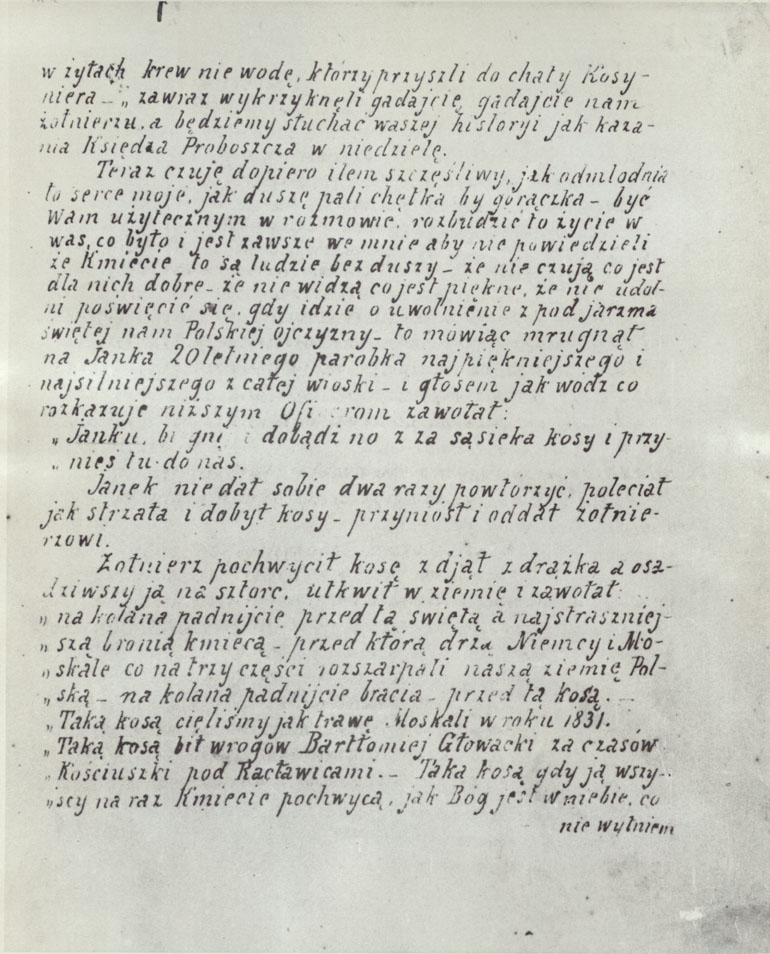 w żyłach krew nie wodę, którzy przyszli do chaty Kosy-
niera – „ zawraz wykrzyknęli gadajcie, gadajcie nam
żołnierzu, a będziemy słuchać waszej historyi jak kaza-
nia Księdza Proboszcza w niedzielę.
Teraz czuję dopiero ilem szczęśliwy, jak odmłodnia
to serce moje, jak duszę pali chętka by gorączka – być
Wam użytecznym w rozmowie, rozbudzić to życie w
was, co było i jest zawsze we mnie aby nie powiedzieli
że Kmiecie to są ludzie bez duszy – że nie czują co jest
dla nich dobre – że nie widzą co jest piękne, że nie udol-
ni poświęcić się, gdy idzie o uwolnienie z pod jarzma
świętej nam Polskiej ojczyzny – to mówiąc mrugnął
na Janka 20 letniego parobka najpiękniejszego i
najsilniejszego z całej wioski – i głosem jak wódz co
rozkazuje niższym zawołał:
„ Janku, i dobądź no z za sąsieka kosy i przy-
„ nieś tu do nas.
Janek nie dał sobie dwa razy powtórzyć, poleciał
jak strzała i dobył kosy – przyniósł i oddał żołnie-
rzowi.
Żołnierz pochwycił kosę zdjął z drążka a osa-
dziwszy ją na sztorc, utkwił w ziemię i zawołał:
„ na kolana padnijcie przed tą świętą a najstraszniej-
„ szą bronią kmiecą – przed którą drżą Niemcy i Mo-
„ skale co na trzy części rozszarpali naszą ziemię Pol-
„ ską – na kolana padnijcie bracia – przed tą kosą. –
„ Taką kosą cięliśmy jak trawę Moskali w roku 1831.
„ Taką kosą bił wrogów Bartłomiej Głowacki za czasów
„ Kościuszki pod Racławicami. – Taka kosą gdy ją wszy-
„ scy na raz Kmiecie pochwycą, jak Bóg jest w niebie, co
nie wytniem